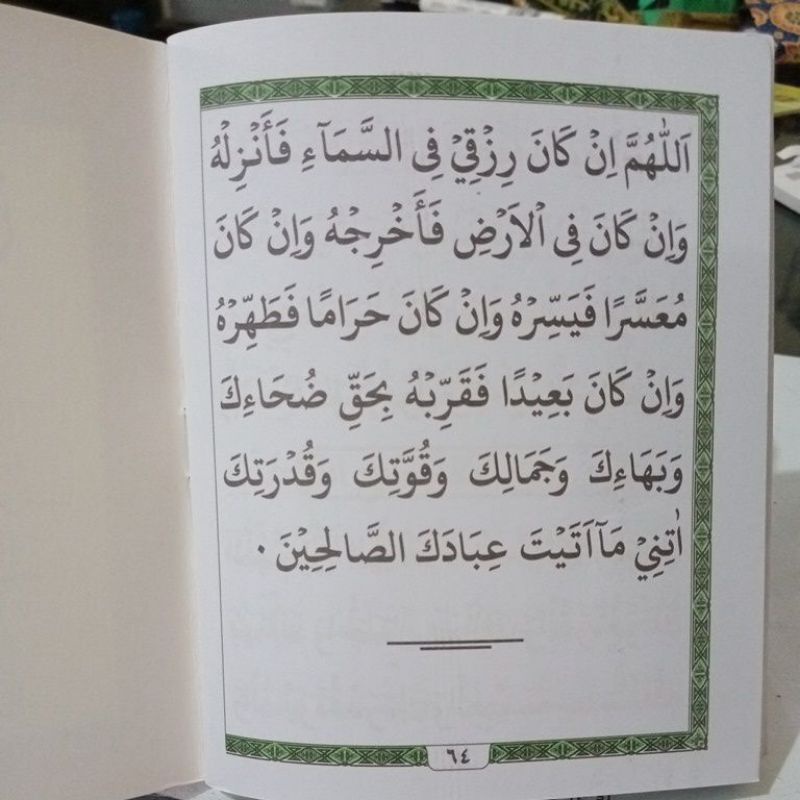 اَللّٰهُمَّ اِنْ كَانَ رِزْقِيْ فِى السَّمَآءِ فَأَنْزِلْهُ
وَاِنْ كَانَ فِى الْاَرْضِ فَأَخْرِجْهُ وَاِنْ كَانَ
مُعَسَّرًا فَيَسِّرْهُ وَاِنْ كَانَ حَرَامًا فَطَهِّرْهُ
وَاِنْ كَانَ بَعِيْدًا فَقَرِّبْهُ بِحَقِّ ضُحَاءِكَ
وَبَهَاءِكَ وَجَمَالِكَ وَقُوَّتِكَ وَقُدْرَتِكَ
اٰتِنِيْ مَآاَتَيْتَ عِبَادَكَ الصَّالِحِيْنَ ٠
٦٤